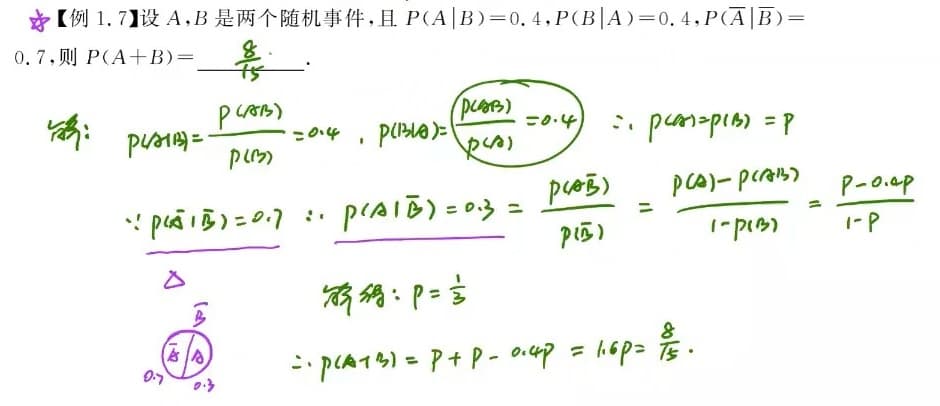 ☆【例 1.7】设 A,B 是两个随机事件,且 P(A|B)=0.4,P(B|A)=0.4,P(A̅|B̅)=
0.7,则 P(A+B)= 8/15 .
解: P(A|B)=P(AB)/P(B)=0.4 , P(B|A)=P(AB)/P(A)=0.4 ∴ P(A)=P(B)=P
∵ P(A̅|B̅)=0.7 ∴ P(A|B̅)=0.3=P(AB̅)/P(B̅)=P(A)-P(AB)/1-P(B)=P-0.4P/1-P
△
解得: P=1/3
B̅
A̅ A
0.7 0.3
∴ P(A+B)=P+P-0.4P=1.6P=8/15.